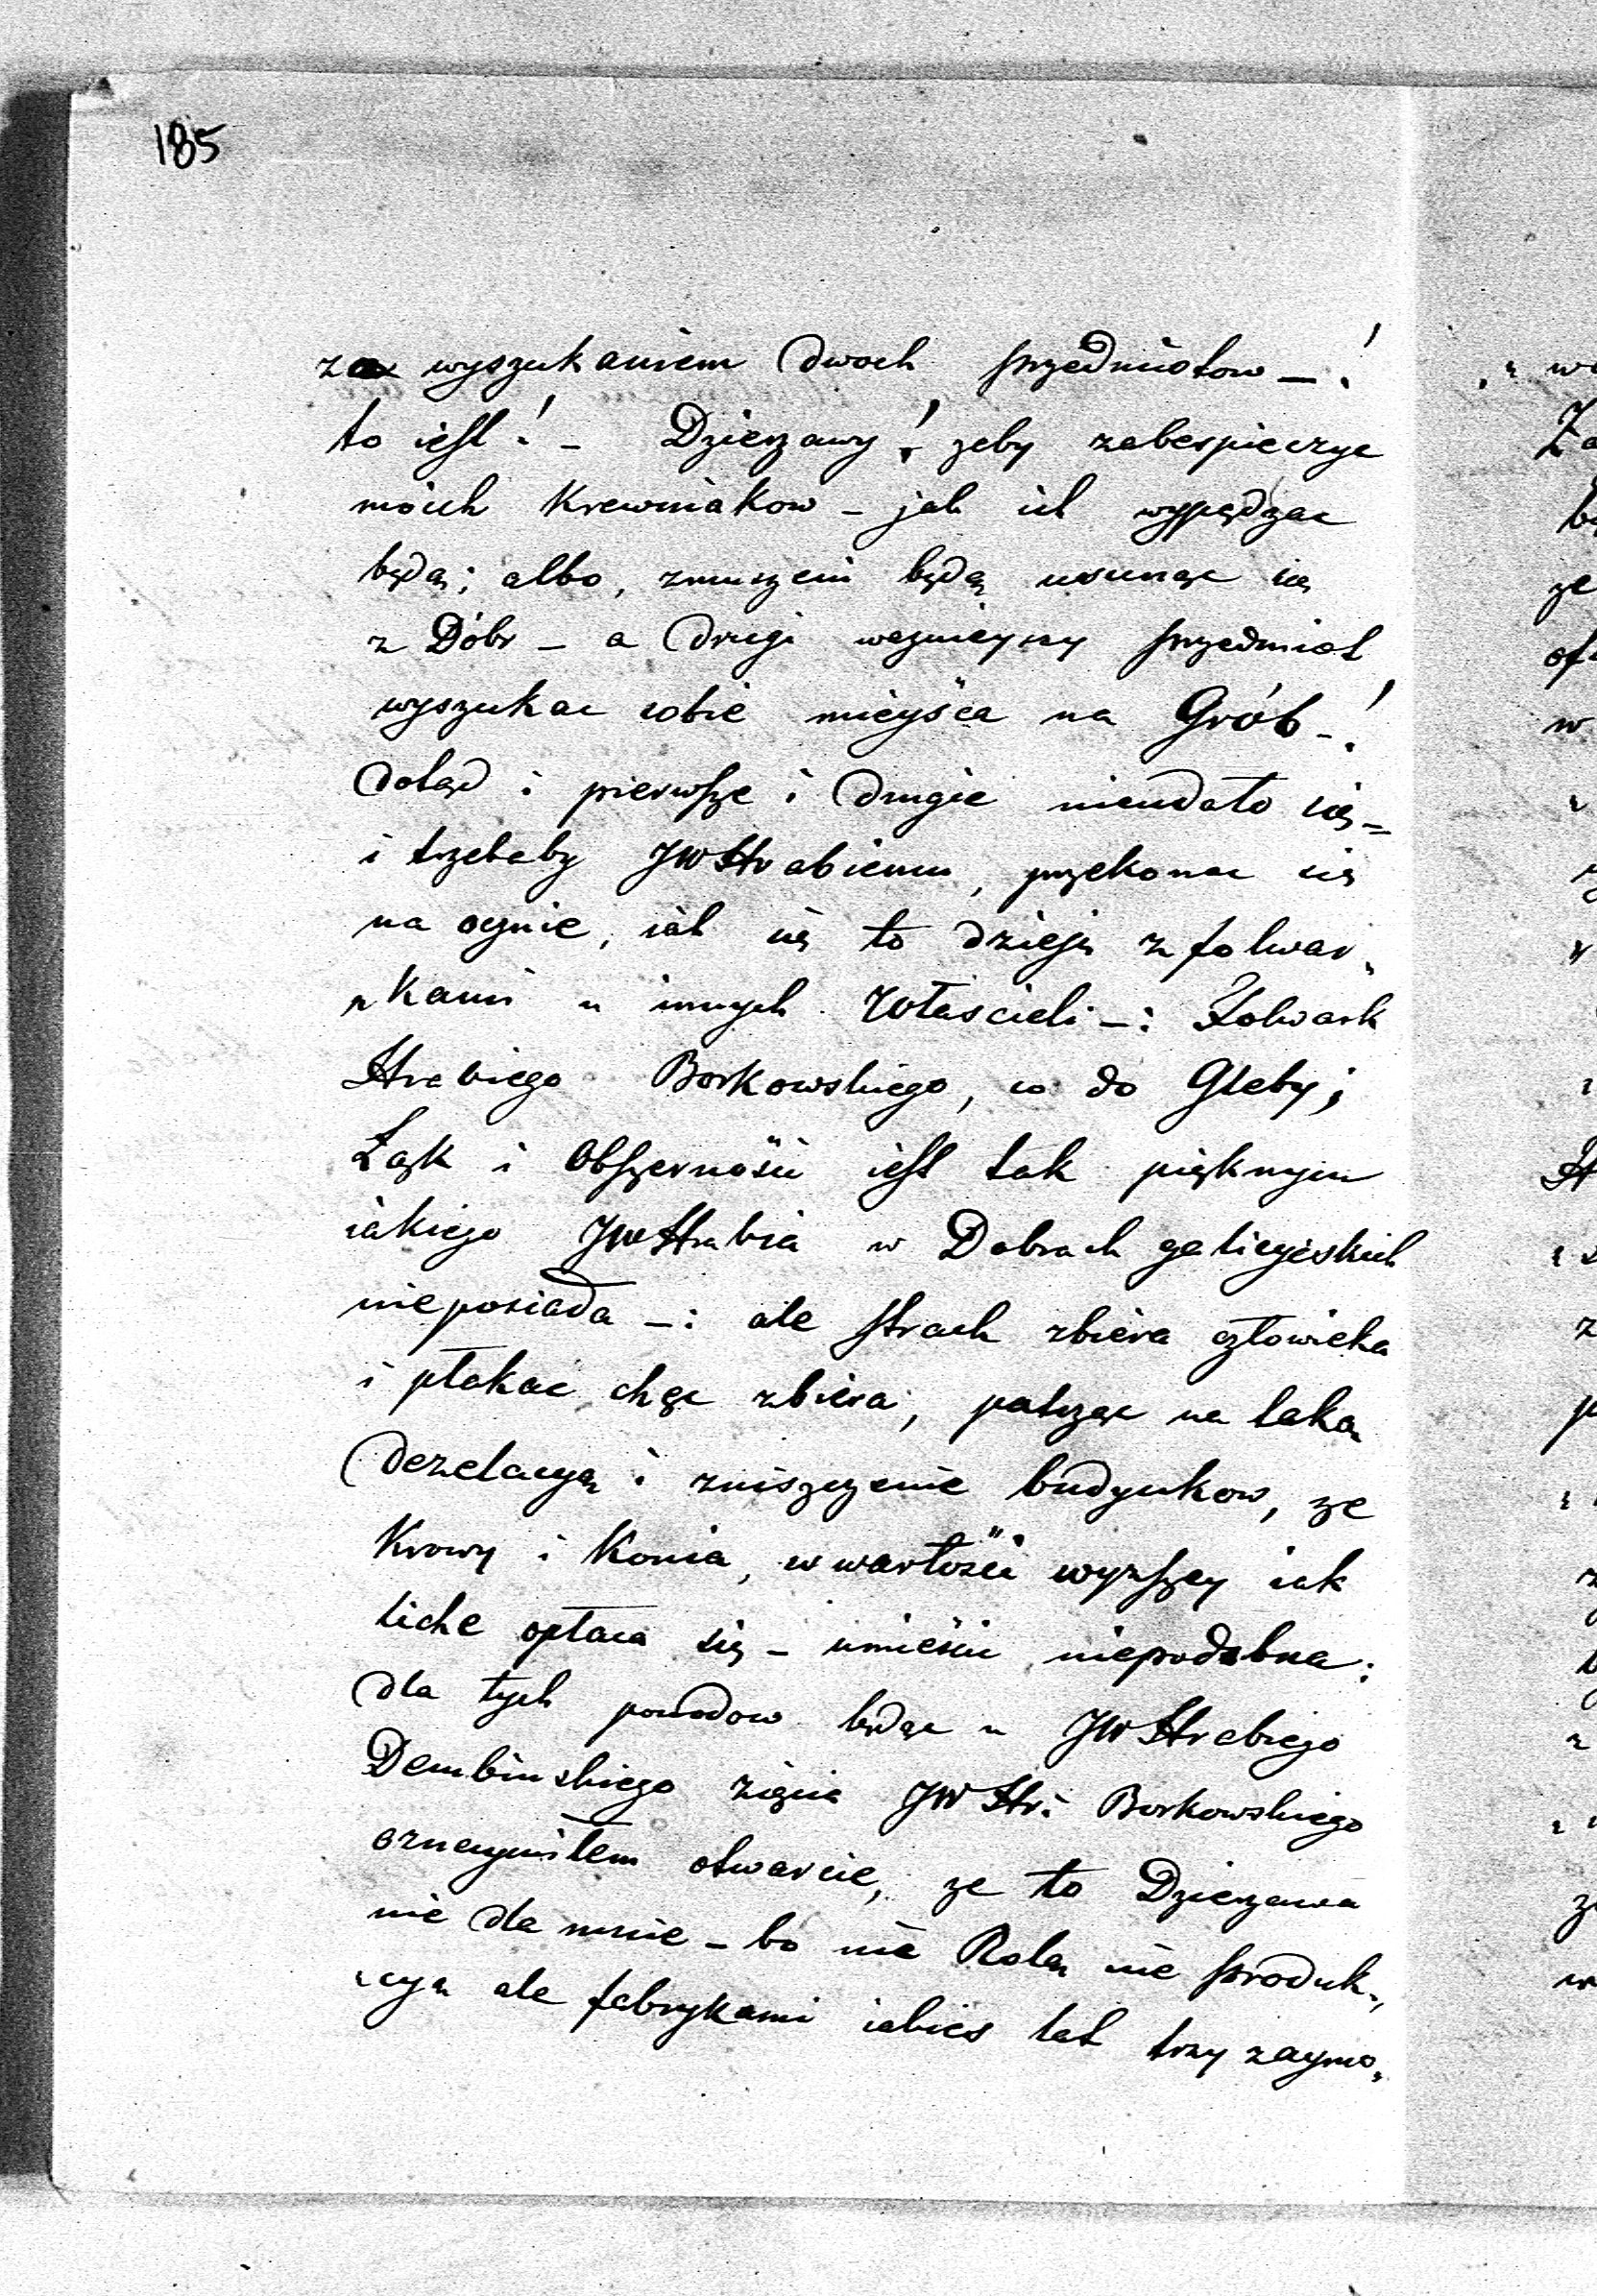 185
za wyszukaniem dwoch przedmiotow —!
to iest! — Dzierzawy! zeby zabespieczyc
moich Krewniakow — jak ich wypędzac
będą; albo, zmuszeni będą usunąc się
z Dóbr — a drugi waznieyszy przedmiot
wyszukac sobie mieyśca na Grób —!
dotąd i pierwsze i drugie nieudało się =
i trzebaby JWHrabiemu, przekonac się
na ocznie, iak się to dzieje z folwar„
„kami u innych Właścicieli —: Folwark
Hrabiego Borkowskiego, co do Gleby;
Łąk i Obszernośći iest tak pięknym
iakiego JWHrabia w Dobrach galicyiskich
nieposiada —: ale strach zbiera człowieka
i płakać chęc zbiera, patrząc na taką
dezelacyą i zniszczenie budynkow, ze
Krowy i Konia, w wartośći wyzszey iak
liche opłaca się — umieśćić niepodobna:
dla tych powodow będąc u JWHrabiego
Dembinskiego zięcia JWHr: Borkowskiego
oznaymiłem otwarcie, ze to Dzierzawa
nie dla mnie — bo nie Rolą nie produk„
„cyą ale fabrykami iakieś lat trzy zaymo„